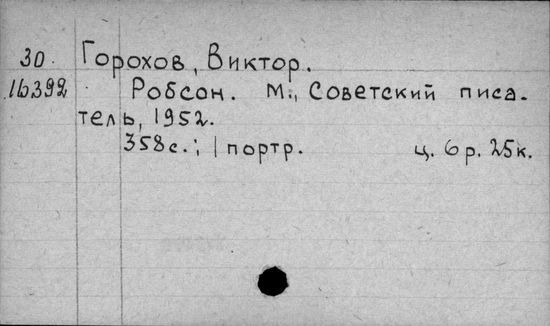 30. Горохов, Виктор.
16392 Робсон. М., Советский писа-
тель, 1952.
358с.; 1 портр. ц. 6р. 25к.